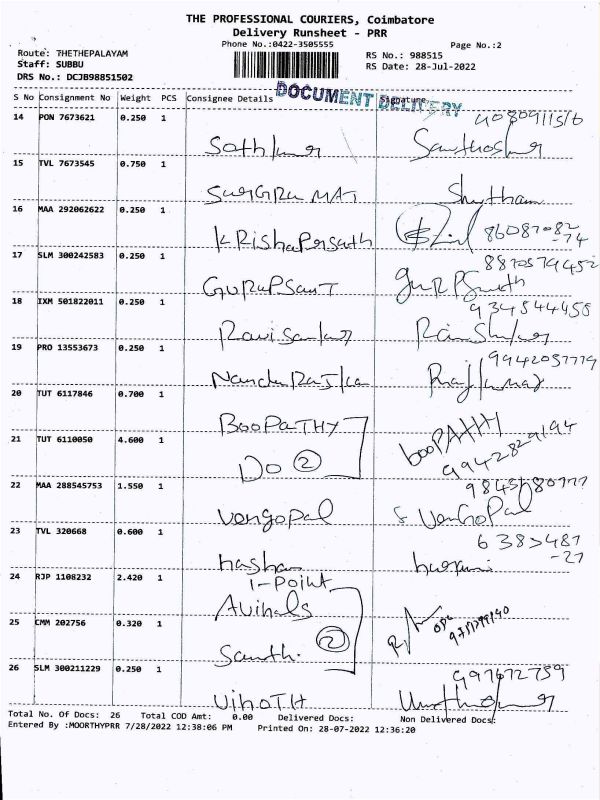 THE PROFESSIONAL COURIERS, Coimbatore
Delivery Runsheet - PRR
Phone No.:0422-3505555
Page No.:2
Route: THETHEPALAYAM
Staff: SUBBU
DRS No.: DCJB98851502
RS No.: 988515
RS Date: 28-Jul-2022
DOCUMENT DELIVERY
S No Consignment No Weight PCS Consignee Details Signature
14 PON 7673621 0.250 1
15 TVL 7673545 0.750 1
16 MAA 292062622 0.250 1
KRishaPrsath 86087082
-74
17 SLM 300242583 0.250 1
8870574452
GURUPSanT
18 IXM 501822011 0.250 1
934544458
19 PRO 13553673 0.250 1
9942057779
20 TUT 6117846 0.700 1
BooPaTHY booPATHY
21 TUT 6110050 4.600 1
9942829194
Do 2
22 MAA 288545753 1.550 1
vengopal S VenGoPal
23 TVL 320668 0.600 1
6383481
-27
hashan
1-Point
24 RJP 1108232 2.420 1
25 CMM 202756 0.320 1
2
26 SLM 300211229 0.250 1
VihoTH
Total No. Of Docs: 26 Total COD Amt: 0.00 Delivered Docs: Non Delivered Docs:
Entered By :MOORTHYPRR 7/28/2022 12:38:06 PM Printed On: 28-07-2022 12:36:20